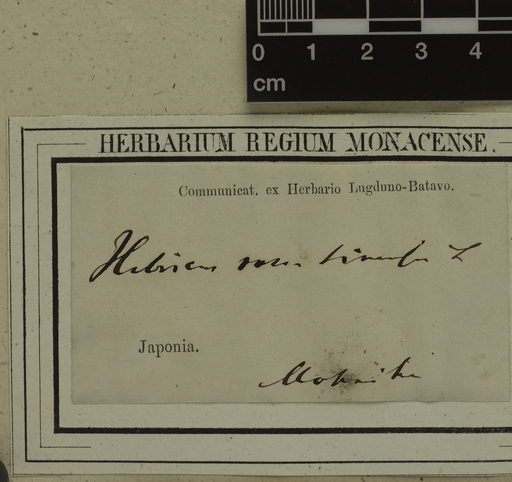 0 1 2 3 4
cm
HERBARIUM REGIUM MONACENSE.
Communicat. ex Herbario Lugduno-Batavo.
Hibiscus rosa sinensis L
Japonia.
Mohnike